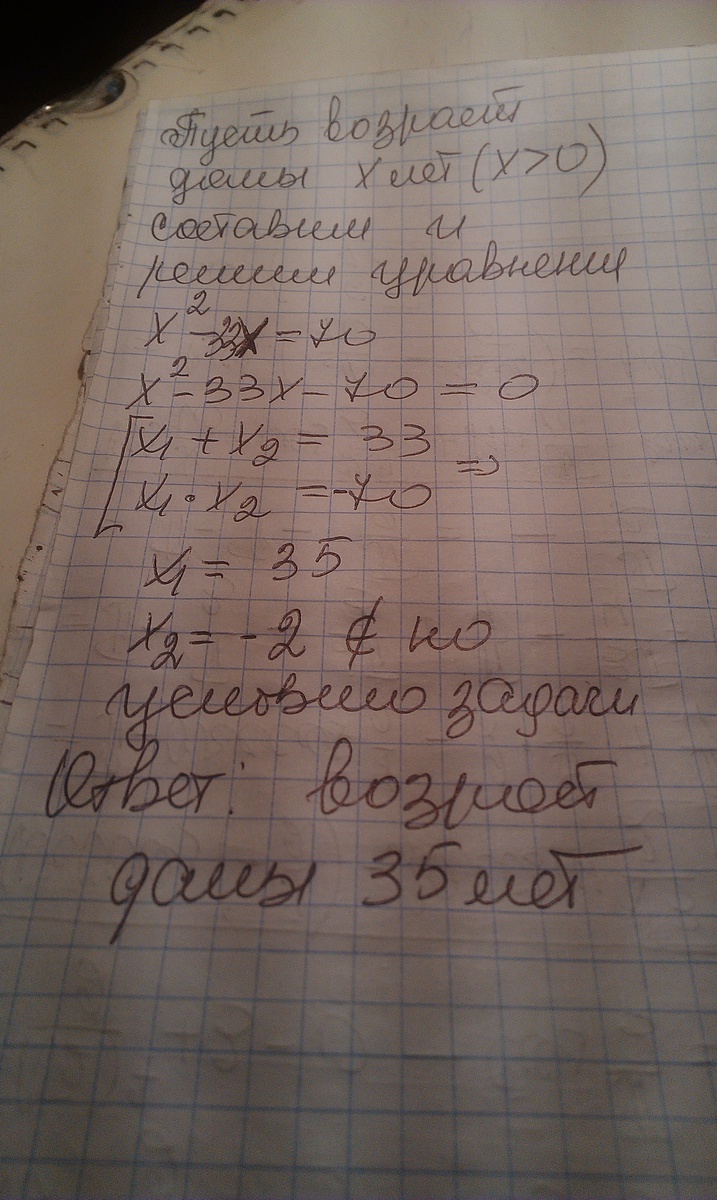 Пусть возраст
дамы x лет (x>0)
составим и
решим уравнения
x² - 33x = 70
x² - 33x - 70 = 0
[x₁ + x₂ = 33
x₁ · x₂ = -70 =>
x₁ = 35
x₂ = -2 ∉ по
условию задачи
Ответ: возраст
дамы 35 лет